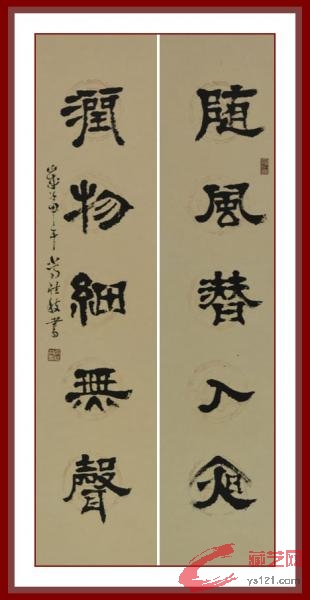 随風潜入夜
潤物細無聲
歲次甲午 書
藏艺网
ys121.com